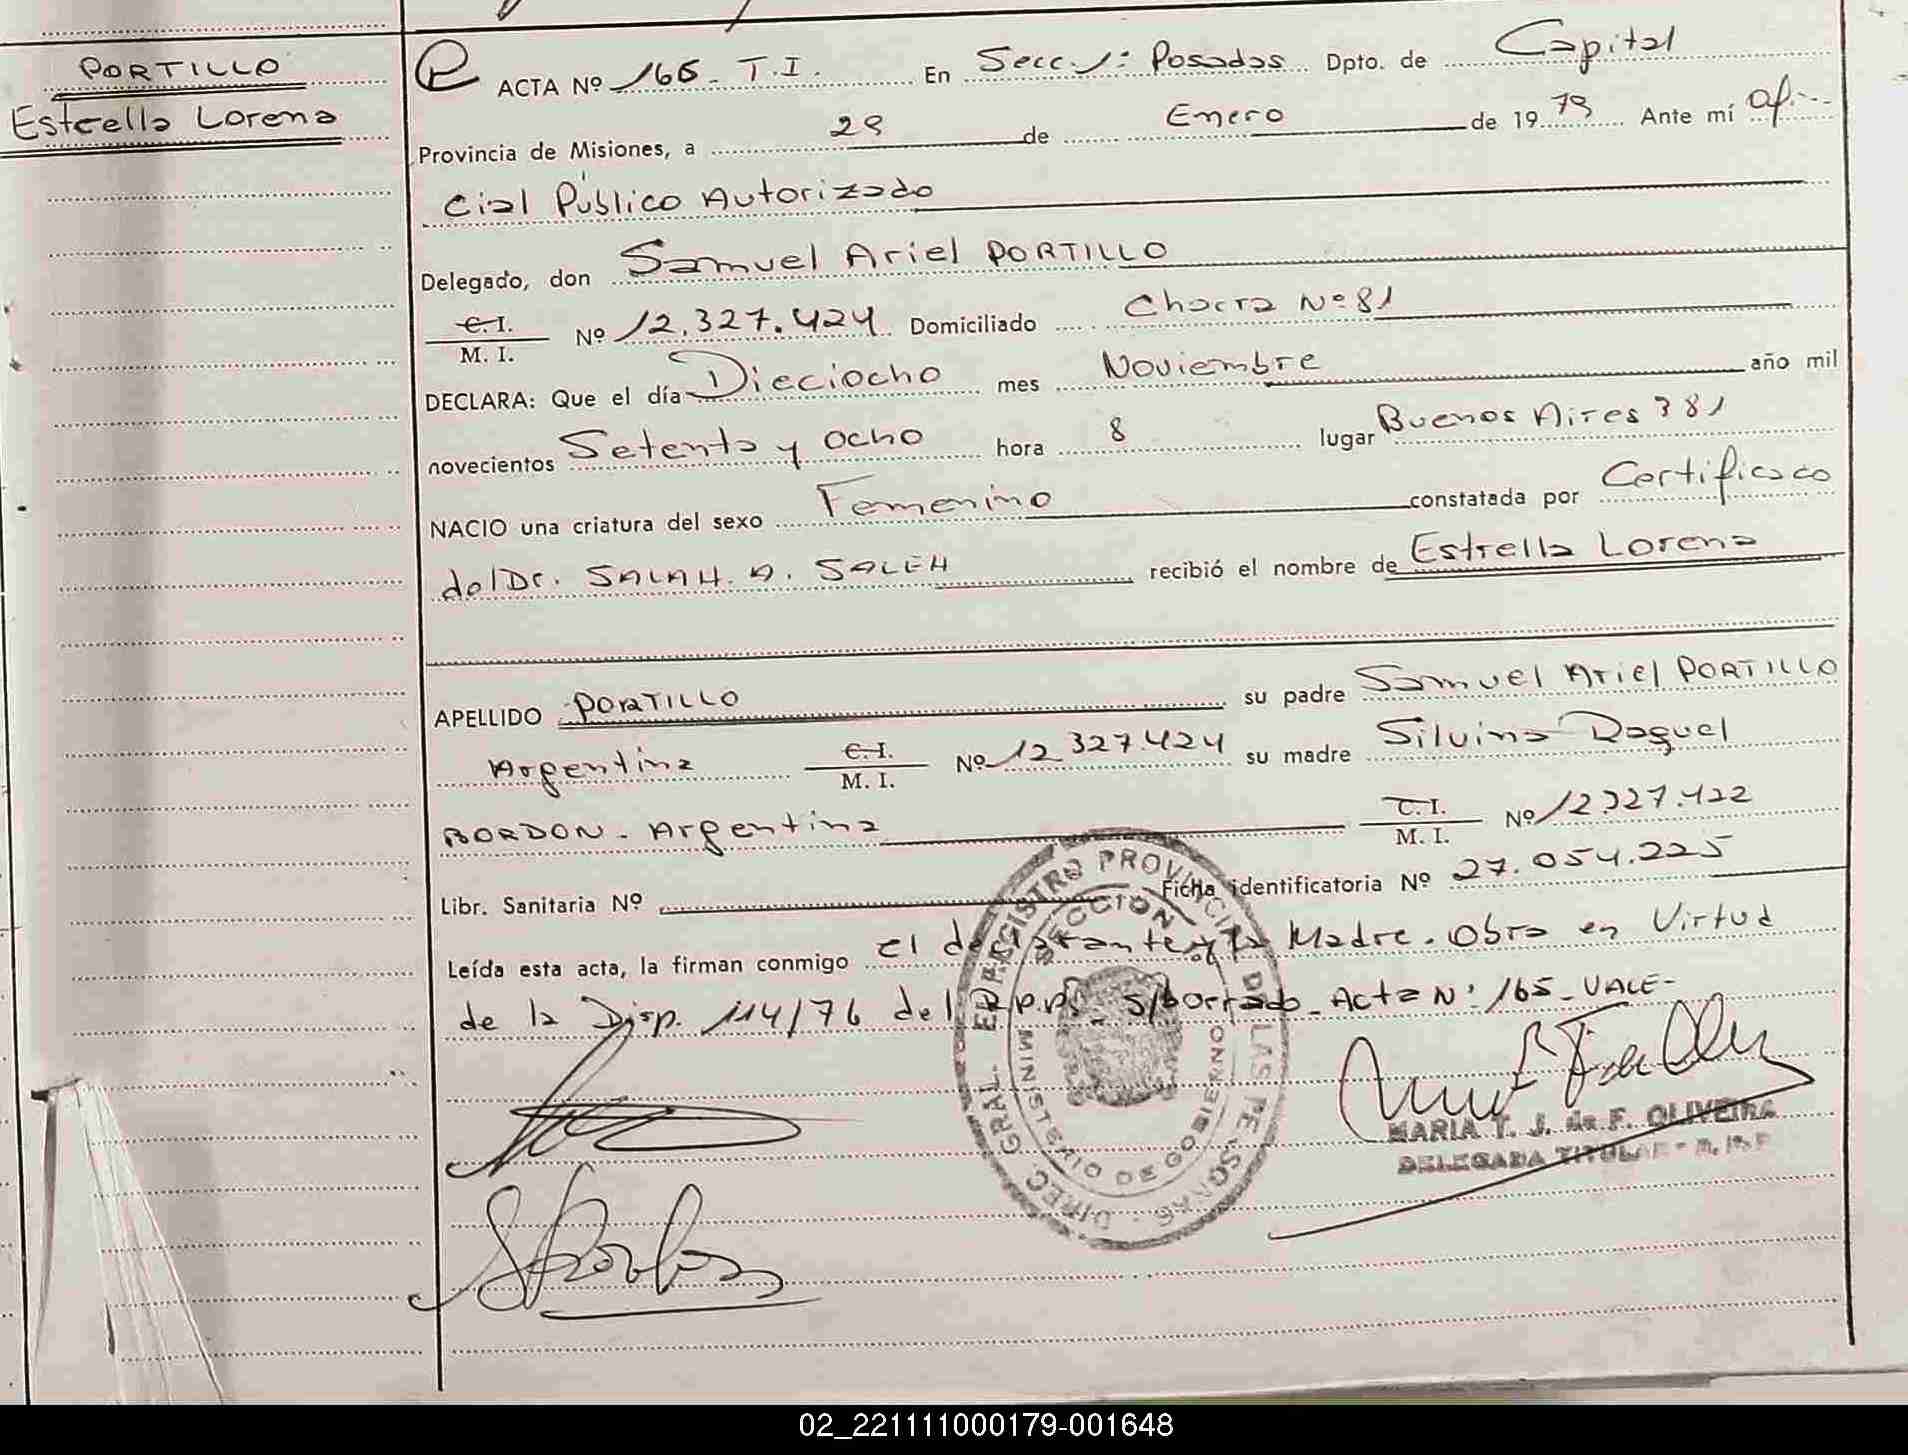 PORTILLO
Estrella Lorena
ACTA Nº 165 - T.I. En Secc. 1: Posadas Dpto. de Capital
Provincia de Misiones, a 29 de Enero de 1979 Ante mí ofi-
cial Público Autorizado
Delegado, don Samuel Ariel PORTILLO
C.I.
M. I. Nº 12.327.424 Domiciliado Chacra Nº 81
DECLARA: Que el día Dieciocho mes Noviembre año mil
novecientos Setenta y ocho hora 8 lugar Buenos Aires 381
NACIO una criatura del sexo Femenino constatada por Certificado
del Dr. SALAH. A. SALEH recibió el nombre de Estrella Lorena
APELLIDO PORTILLO su padre Samuel Ariel PORTILLO
Argentina C.I. M. I. Nº 12.327.424 su madre Silvina Raquel
BORDON - Argentina C.I. M. I. Nº 12.327.422
Libr. Sanitaria Nº Ficha identificatoria Nº 27.054.225
Leída esta acta, la firman conmigo el declarante y la Madre. Obra en Virtud
de la Disp. 114/76 del R.P.P. S/borrado - Acta N: 165 - VALE -
DIREC. GRAL. DEL REGISTRO PROVINCIAL DE LAS PERSONAS
SECCION
MINISTERIO DE GOBIERNO
MARIA T. J. de F. OLIVEIRA
DELEGADA TITULAR - R. P. P.
02_221111000179-001648